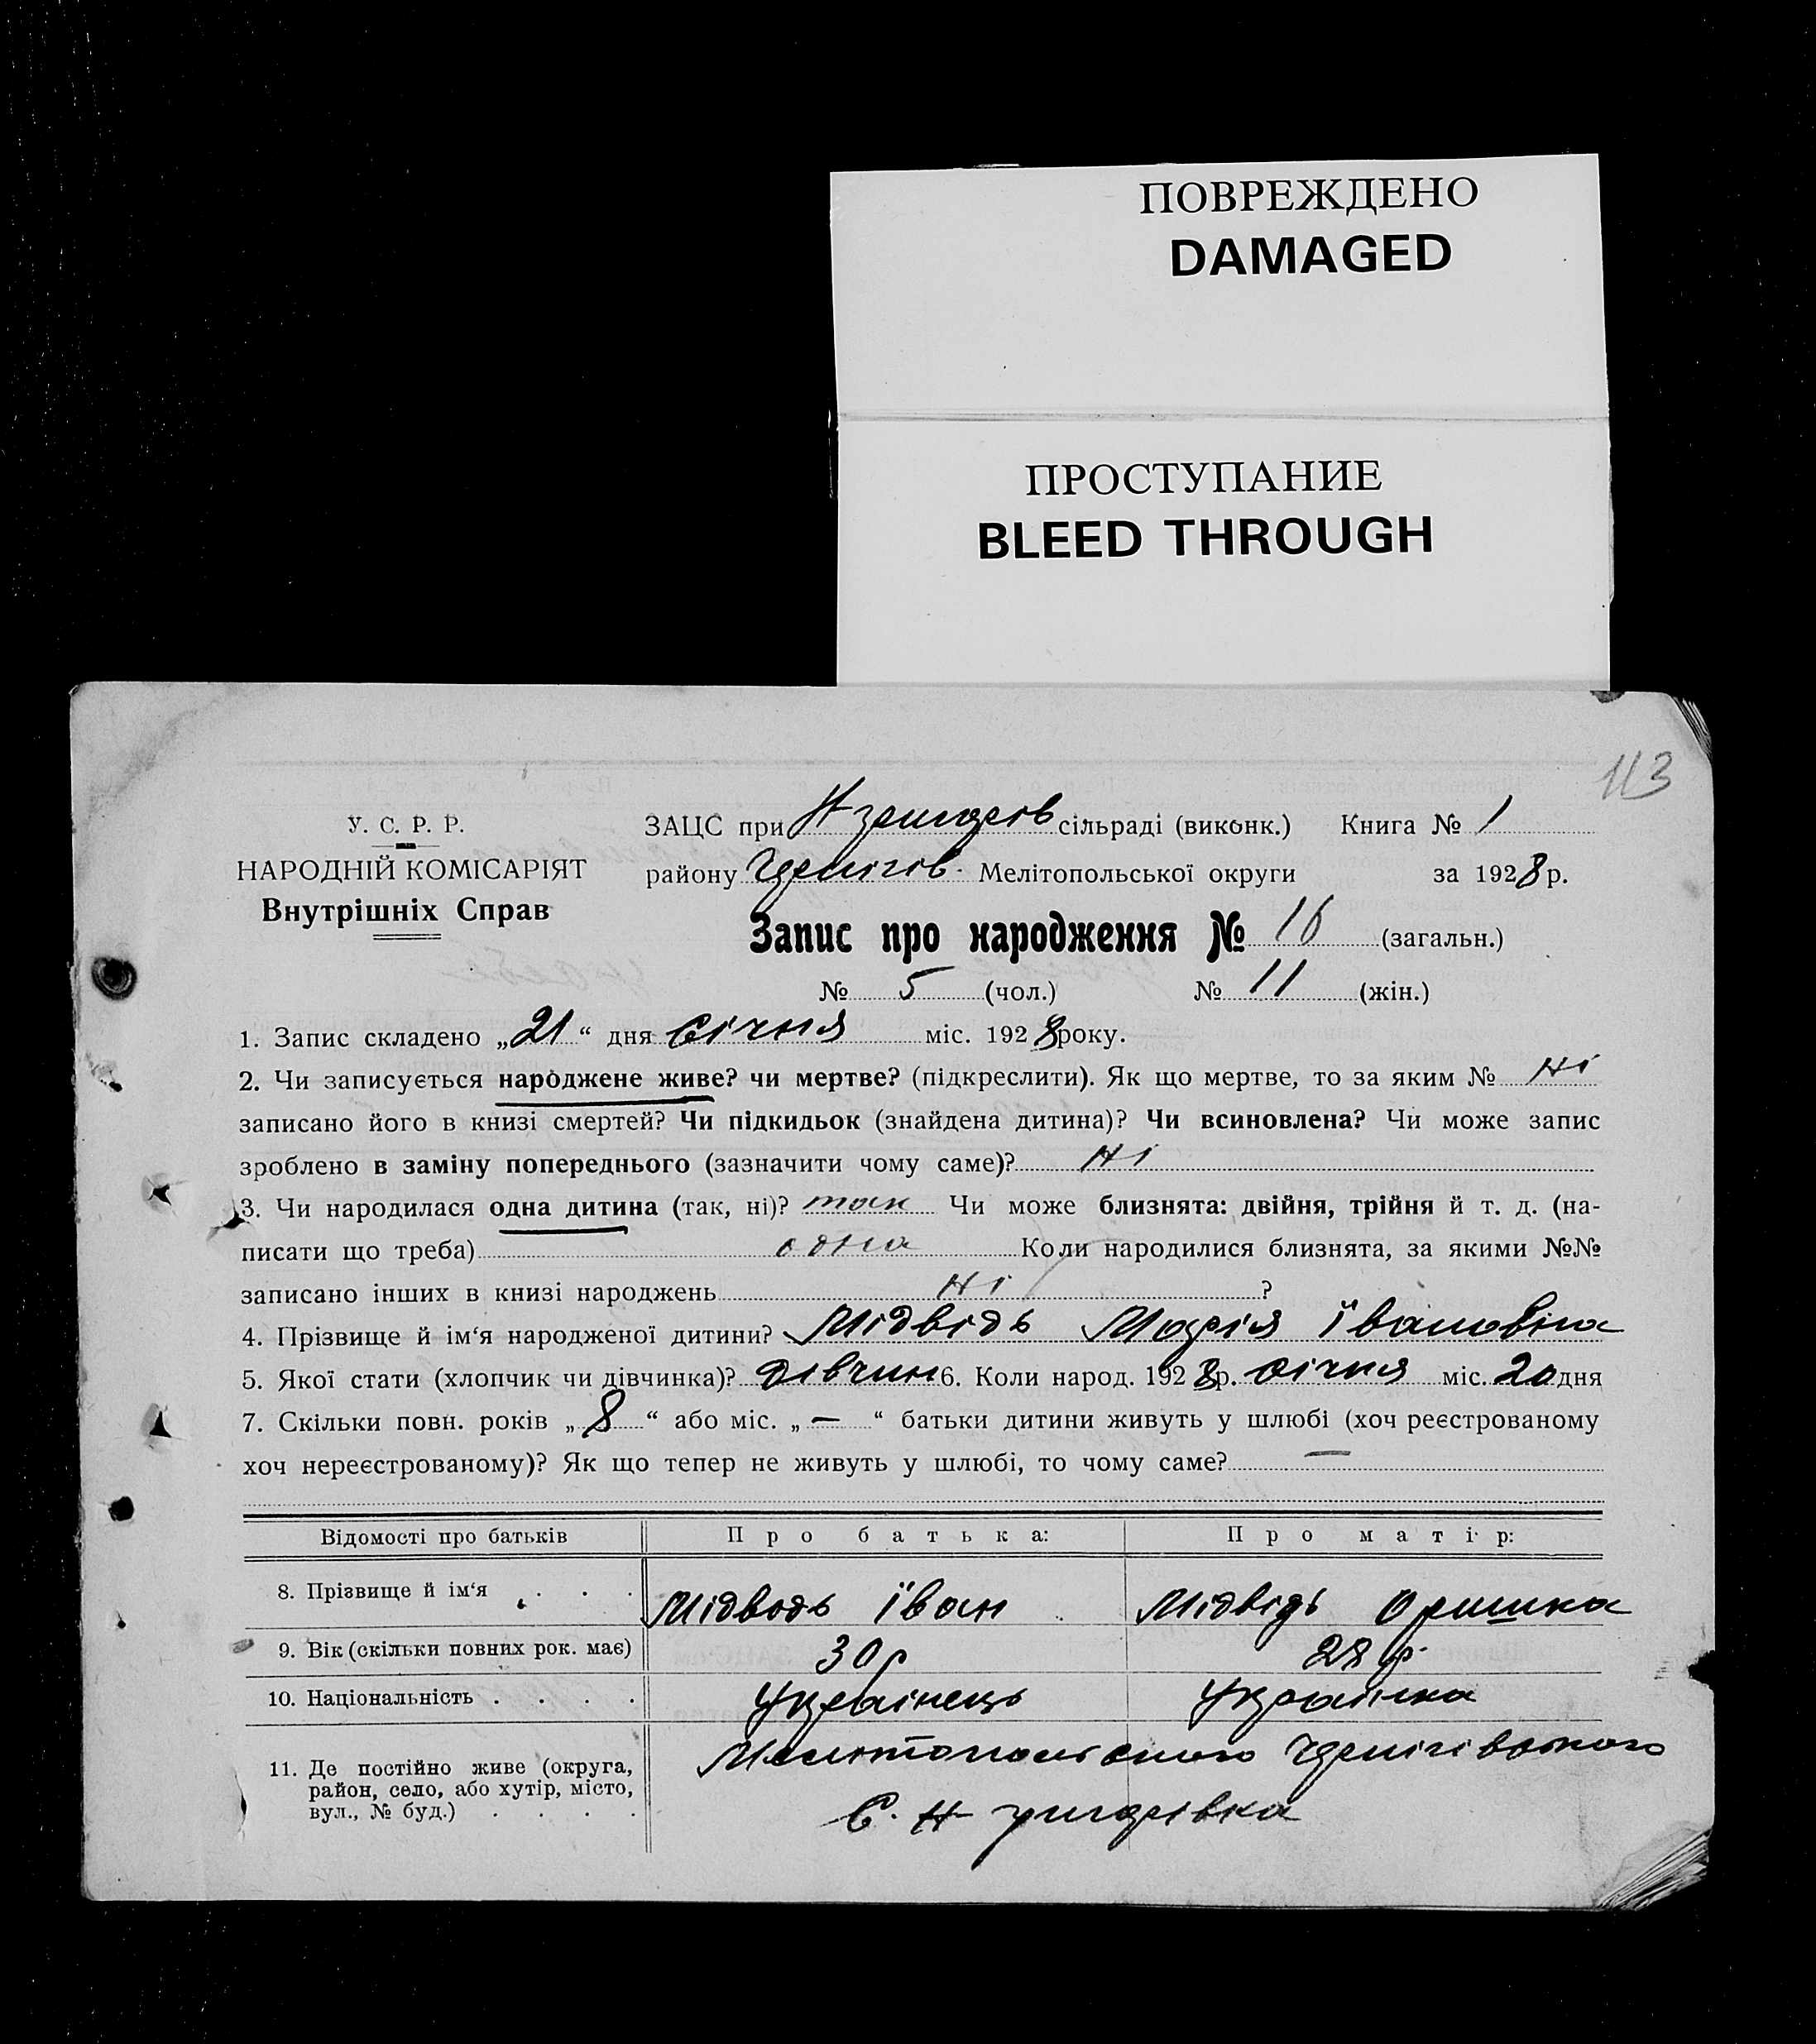 ПОВРЕЖДЕНО
DAMAGED
ПРОСТУПАНИЕ
BLEED THROUGH
113
У. С. Р. Р.
НАРОДНІЙ КОМІСАРІЯТ
Внутрішніх Справ
ЗАЦС при сільраді (виконк.) Книга № 1
району Чернігів. Мелітопольської округи за 1928 р.
Запис про народження № 16 (загальн.)
№ 5 (чол.) № 11 (жін.)
1. Запис складено „21“ дня Січня міс. 1928 року.
2. Чи записується народжене живе? чи мертве? (підкреслити). Як що мертве, то за яким № Ні
записано його в книзі смертей? Чи підкидьок (знайдена дитина)? Чи всиновлена? Чи може запис
зроблено в заміну попереднього (зазначити чому саме)? Ні
3. Чи народилася одна дитина (так, ні)? так Чи може близнята: двійня, трійня й т. д. (на-
писати що треба) одна Коли народилися близнята, за якими №№
записано інших в книзі народжень Ні ?
4. Прізвище й ім‘я народженої дитини? Мідвідь Марія Івановіна
5. Якої стати (хлопчик чи дівчинка)? дівчин 6. Коли народ. 1928 р. січня міс. 20 дня
7. Скільки повн. років „8“ або міс. „—“ батьки дитини живуть у шлюбі (хоч реєстрованому
хоч нереєстрованому)? Як що тепер не живуть у шлюбі, то чому саме? —
Відомості про батьків Про батька: Про матір:
8. Прізвище й ім‘я . . . Мідводь Іван Мідвідь Оришка
9. Вік (скільки повних рок. має) 30 р 28 р.
10. Національність . . . . Українець Українка
11. Де постійно живе (округа, район, село, або хутір, місто, вул., № буд.) . . . .
Мелитопольского Чернігівського
С. Н